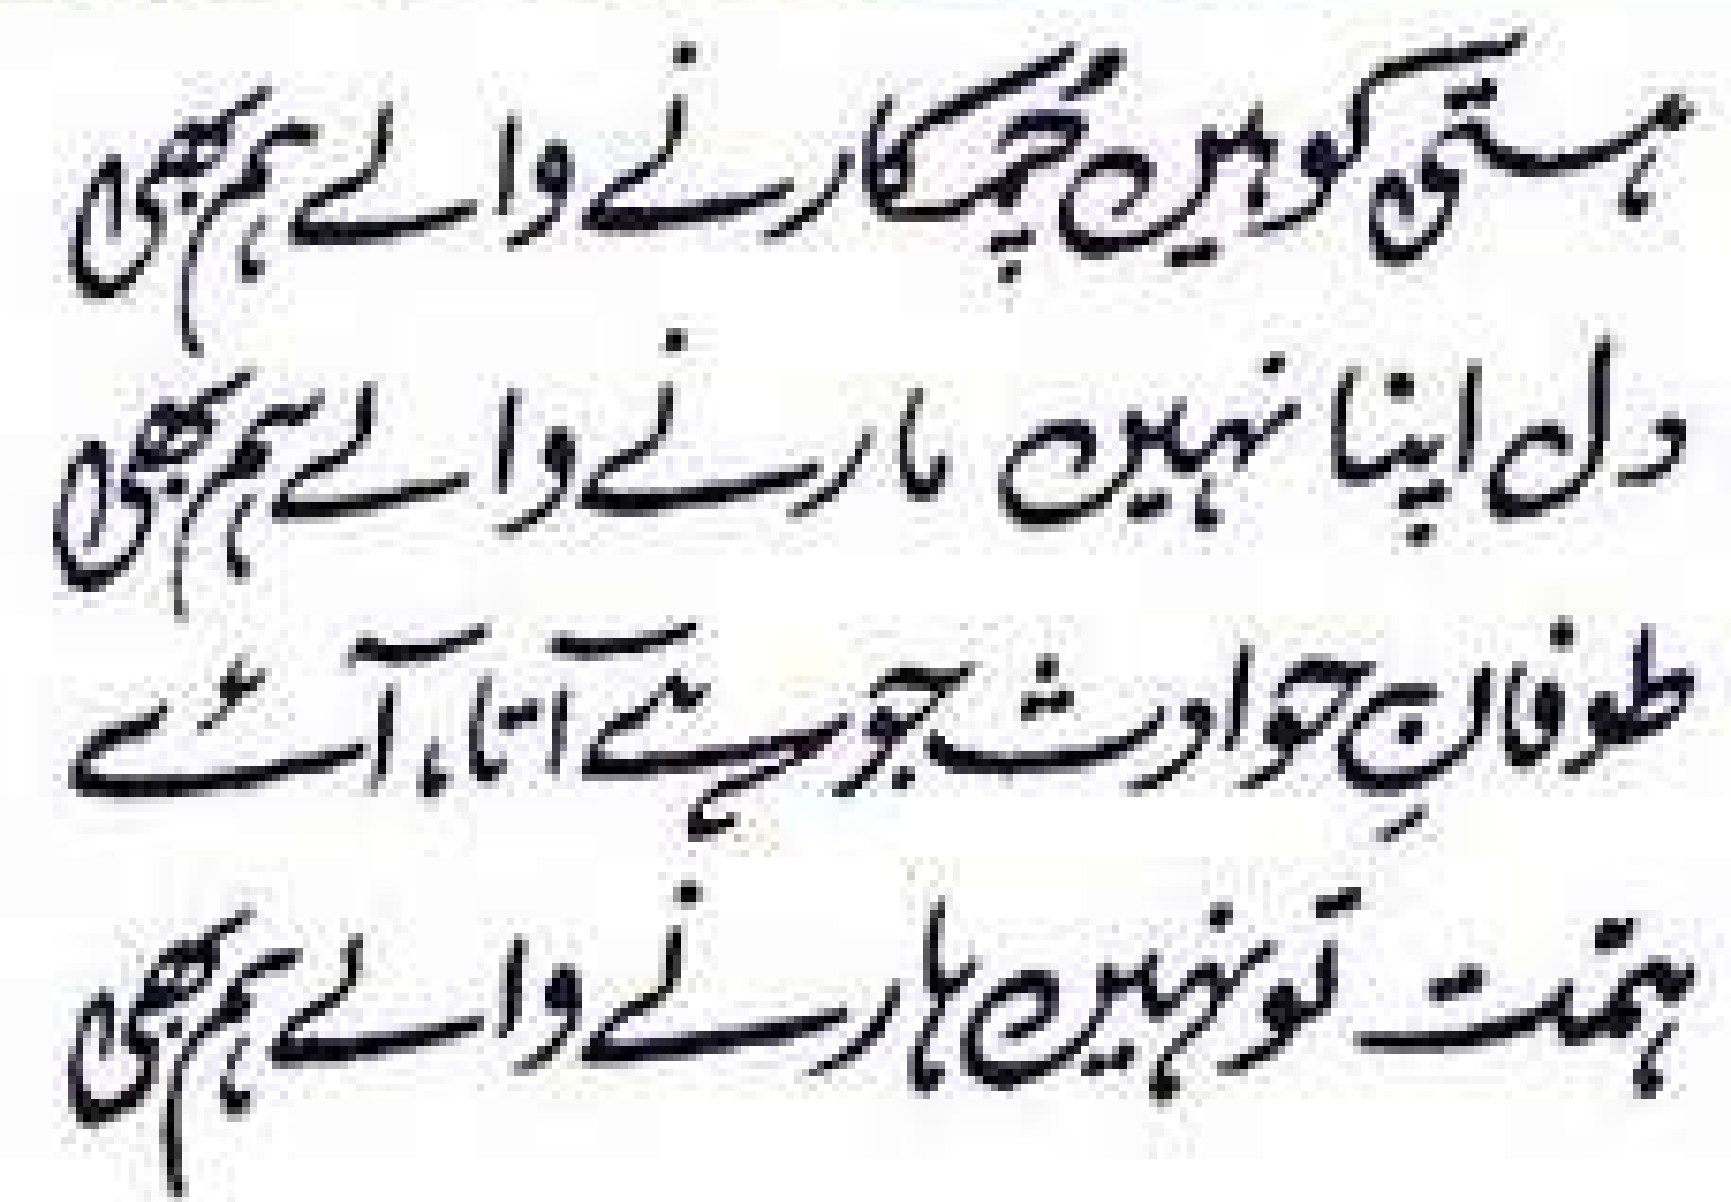 ہستی کو ہیں چُمکارنے والے ہم بھی
دل اپنا نہیں مارنے والے ہم بھی
طوفانِ حوادث جو ہے آتا، آئے
ہمّت تو نہیں ہارنے والے ہم بھی